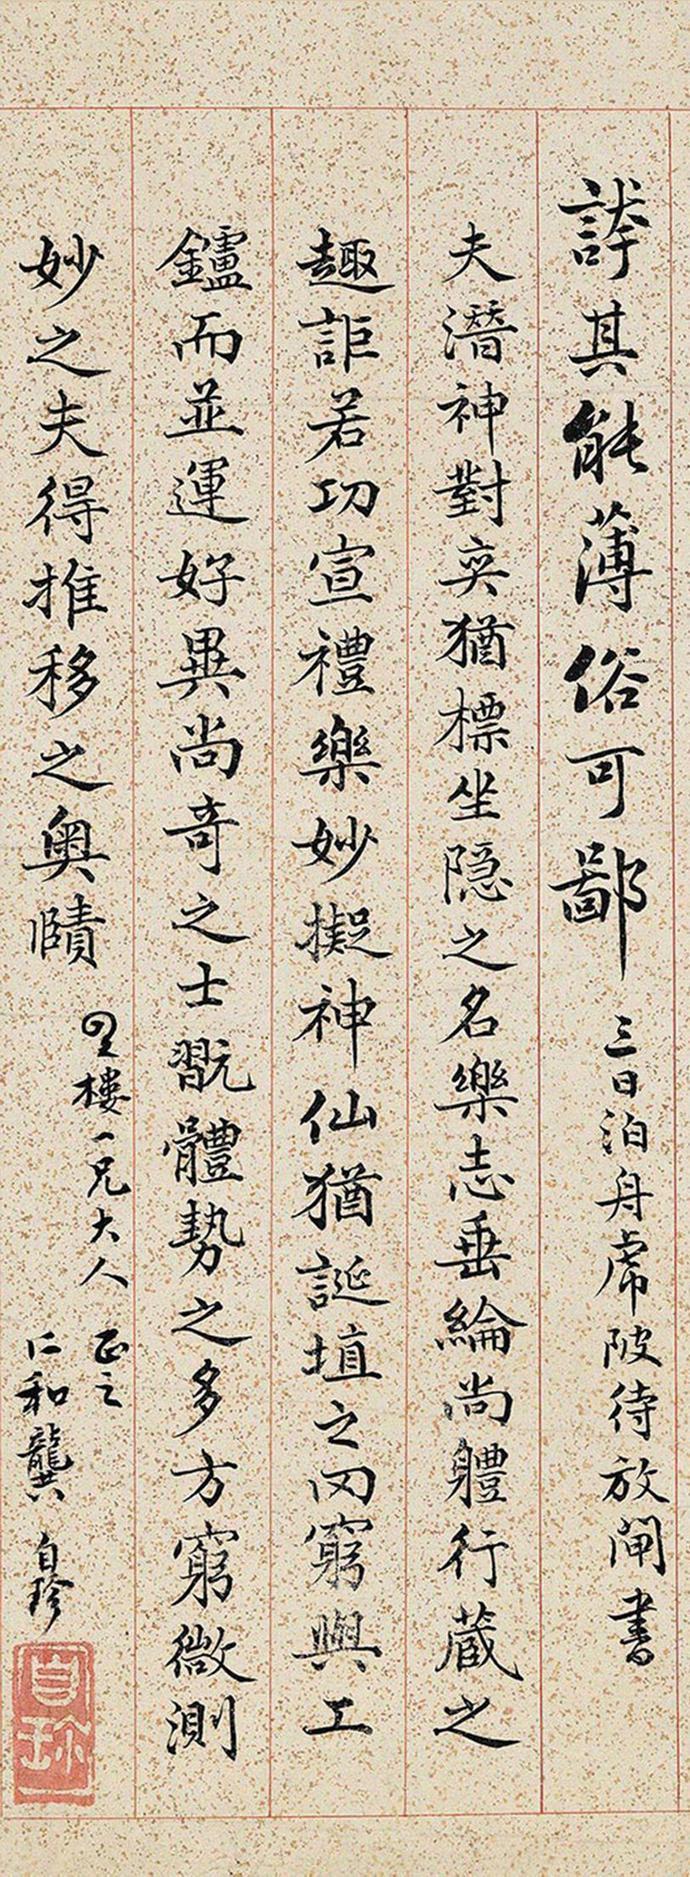 誇其能薄俗可鄙 三日泊舟虎陂待放閘書
夫潛神對奕猶標坐隱之名樂志垂綸尚體行藏之
趣詎若功宣禮樂妙擬神仙猶誕埴之罔窮與工
鑪而並運好異尚奇之士翫體勢之多方窮微測
妙之夫得推移之奧賾
星樓一兄大人 正之
仁和龔自珍
自珍